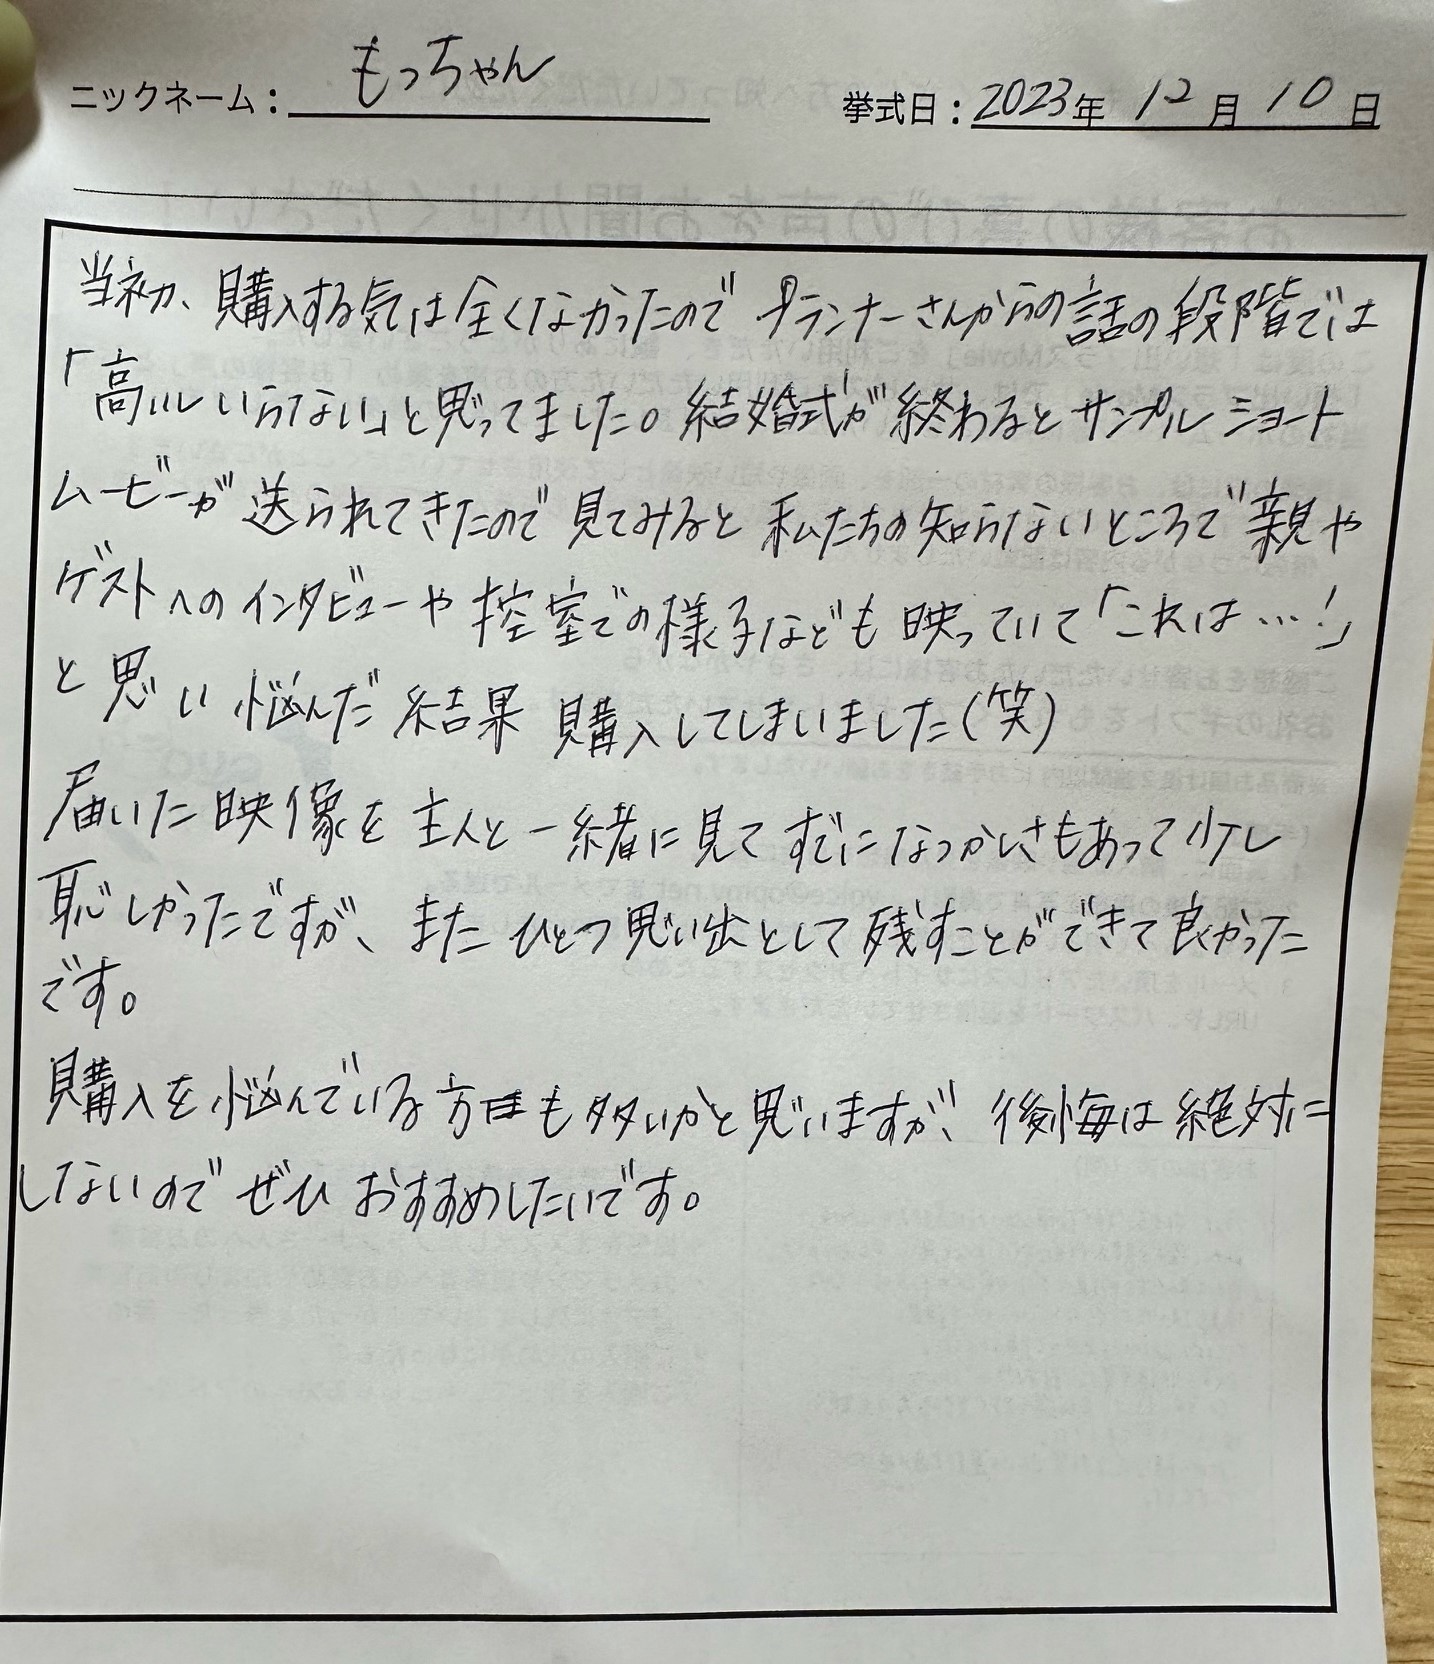 ニックネーム：もっちゃん 挙式日：2023年 12月 10日
当初、購入する気は全くなかったので プランナーさんからの話の段階では
「高いしいらない」と思ってました。結婚式が終わるとサンプルショート
ムービーが送られてきたので見てみると私たちの知らないところで親や
ゲストへのインタビューや控室での様子なども映っていて「これは…！」
と思い悩んだ結果 購入してしまいました(笑)
届いた映像を主人と一緒に見て すでになつかしさもあって少し
恥しかったですが、またひとつ思い出として残すことができて良かった
です。
購入を悩んでいる方も多いかと思いますが、後悔は絶対に
しないのでぜひおすすめしたいです。